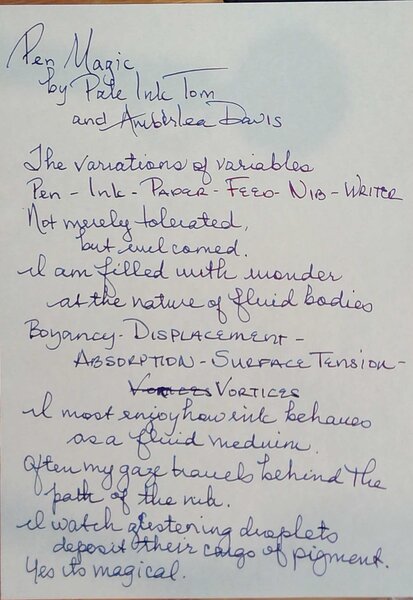 Pen Magic
by Pale Ink Tom
and Amberlea Davis
The variations of variables
Pen - Ink - Paper - Feed - Nib - Writer
Not merely tolerated,
but welcomed.
I am filled with wonder
at the nature of fluid bodies
Boyancy - Displacement -
Absorption - Surface Tension -
Vortices Vortices
I most enjoy how ink behaves
as a fluid medium.
Often my gaze travels behind the
path of the nib.
I watch glistening droplets
deposit their cargo of pigment.
Yes its magical.